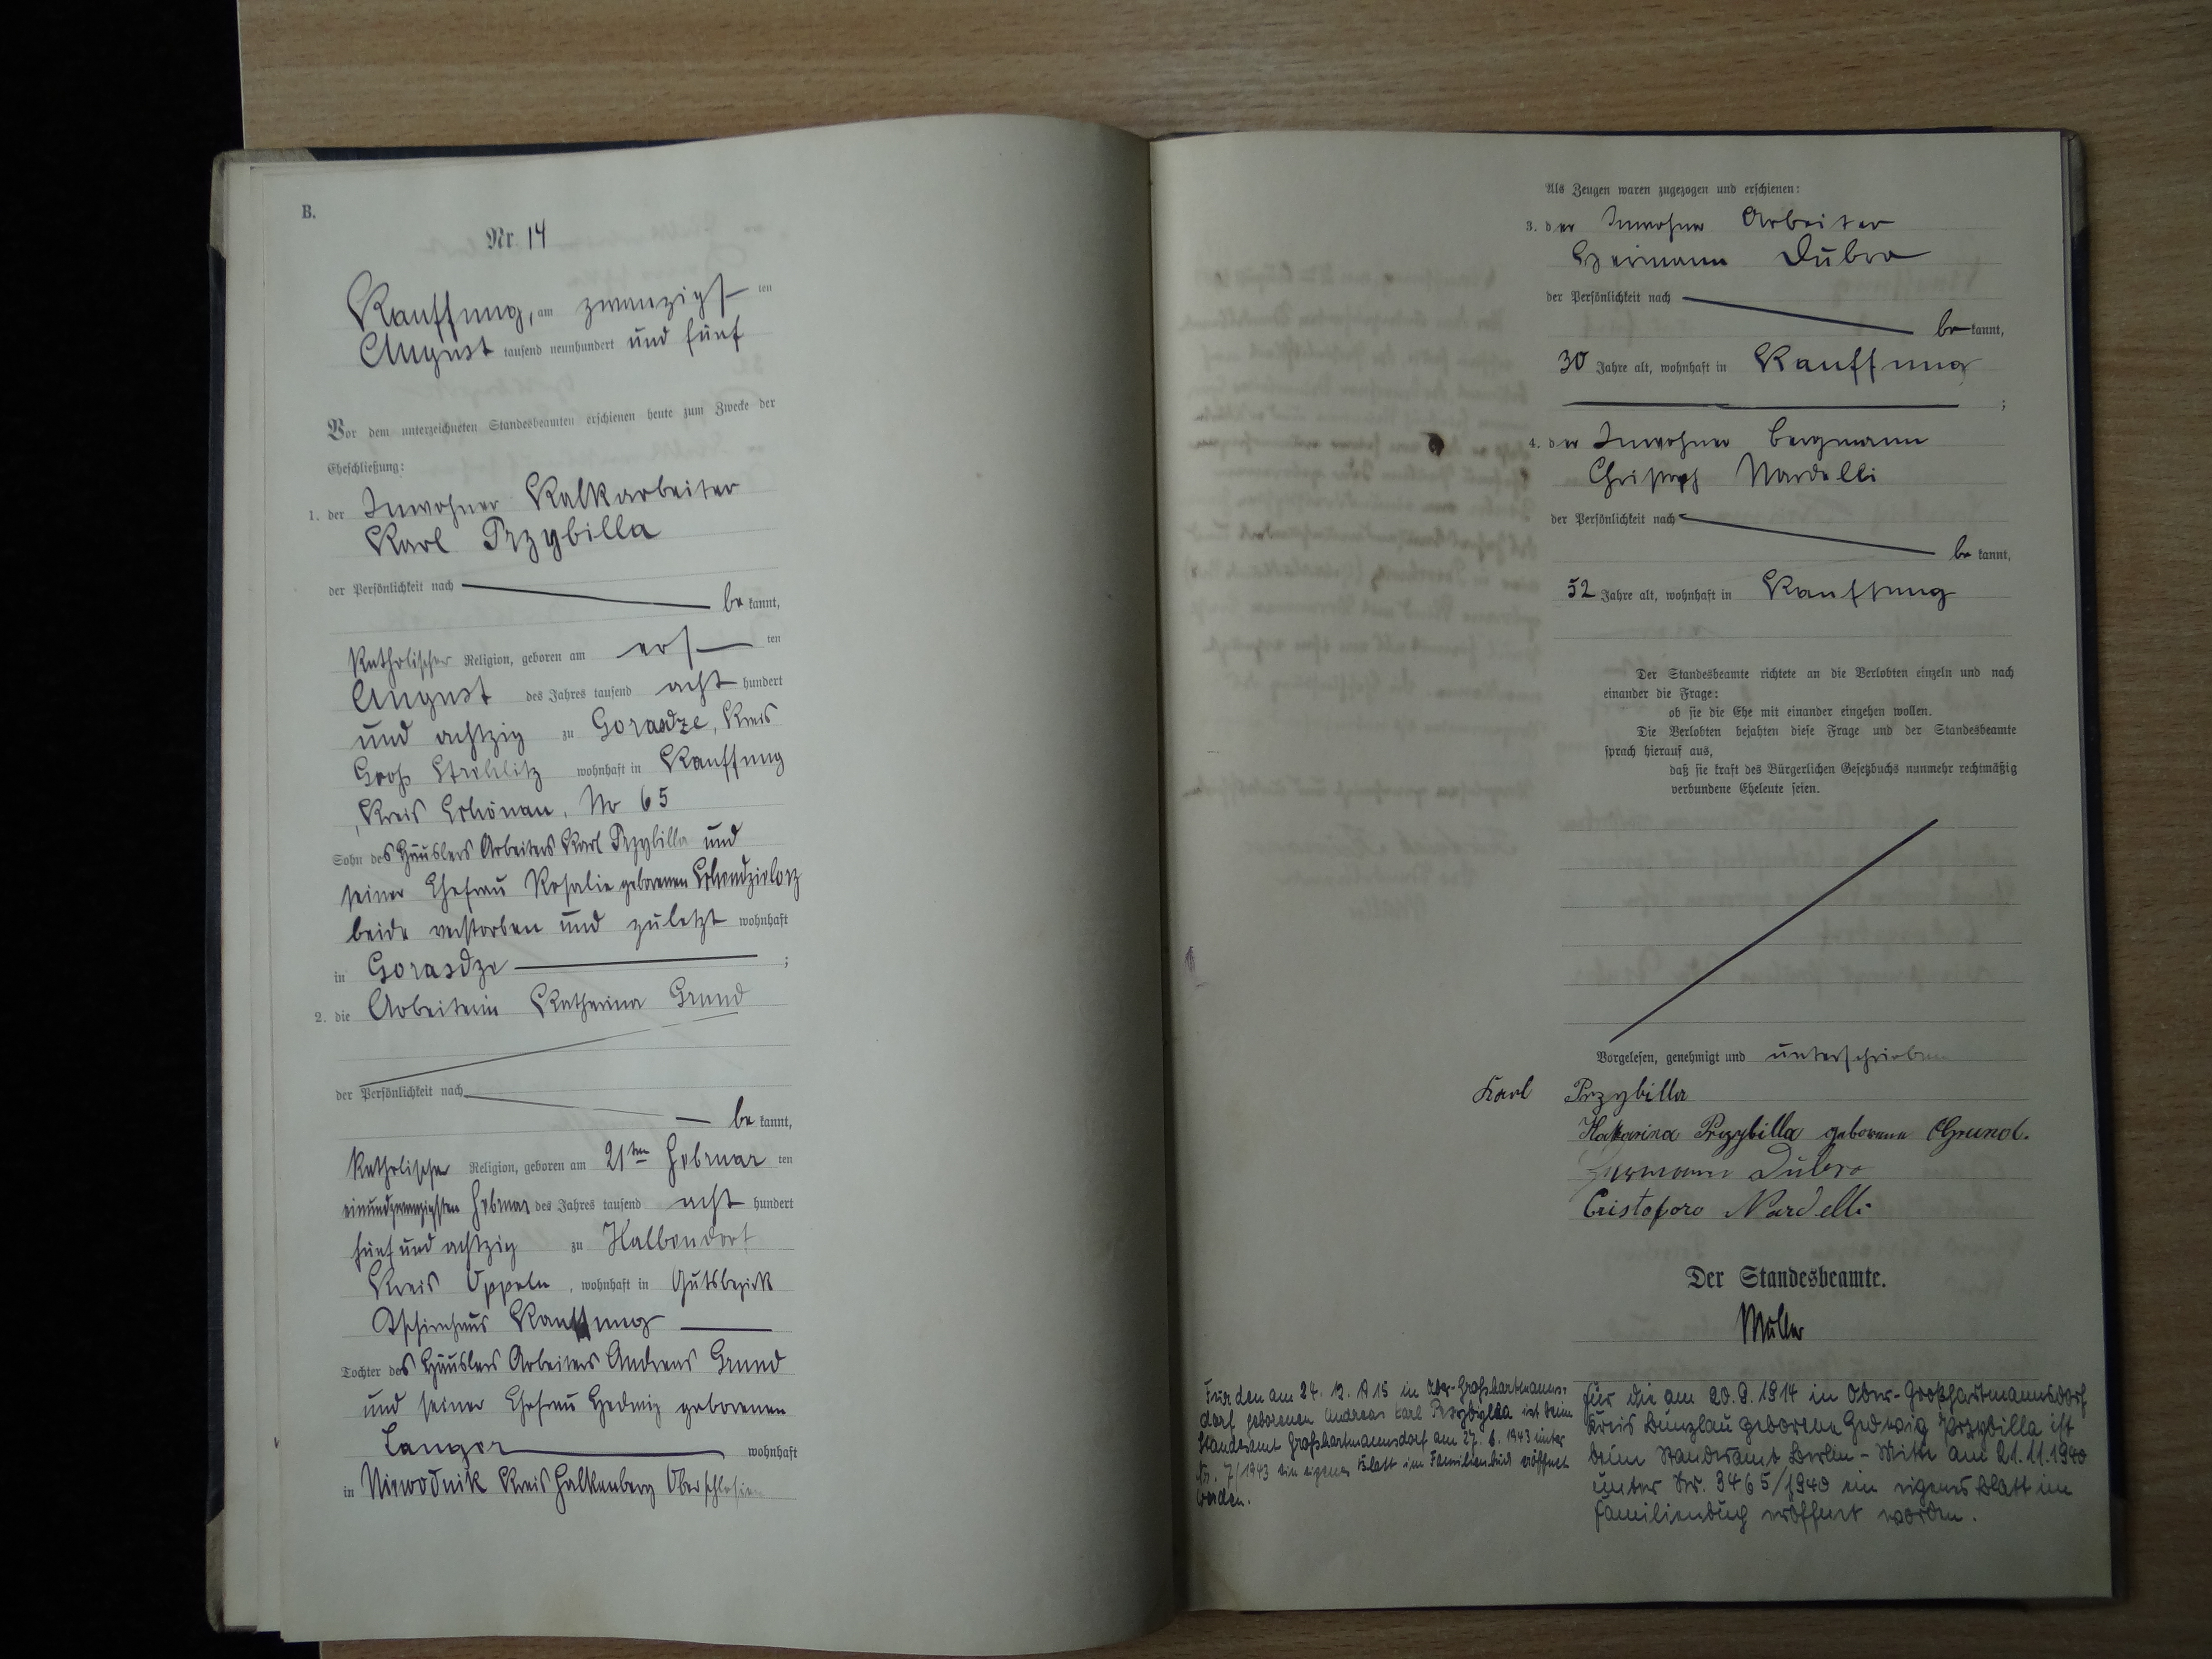 B.
Nr. 14
Kauffung, am zwanzigsten
August tausend neunhundert und fünf
Vor dem unterzeichneten Standesbeamten erschienen heute zum Zwecke der
Eheschließung:
1. der Inwohner Kalkarbeiter
Karl Przybilla
der Persönlichkeit nach be kannt,
Katholischer Religion, geboren am ersten
August des Jahres tausend acht hundert
und achtzig zu Gorasdze, Kreis
Groß Strehlitz wohnhaft in Kauffung
Kreis Schönau, No 65
Sohn des Häuslers Arbeiters Karl Przybilla und
seiner Ehefrau Rosalie geborenen
beide verstorben und zuletzt wohnhaft
in Gorasdze ;
2. die Arbeiterin Katharina Grund
der Persönlichkeit nach be kannt,
Katholischer Religion, geboren am 21ten Februar ten
einundzwanzigsten Februar des Jahres tausend acht hundert
fünf und achtzig zu Halbendorf
Kreis Oppeln, wohnhaft in Gutsbezirk
Tschirnhaus Kauffung
Tochter des Häuslers Arbeiters Andreas Grund
und seiner Ehefrau Hedwig geborenen
Langer wohnhaft
in Niewodnik Kreis Falkenberg Oberschlesien
Als Zeugen waren zugezogen und erschienen:
3. der Inwohner Arbeiter
Hermann Dubro
der Persönlichkeit nach be kannt,
30 Jahre alt, wohnhaft in Kauffung
;
4. der Inwohner Bergmann
Christoph Nardelli
der Persönlichkeit nach be kannt,
52 Jahre alt, wohnhaft in Kauffung
Der Standesbeamte richtete an die Verlobten einzeln und nach
einander die Frage:
ob sie die Ehe mit einander eingehen wollen.
Die Verlobten bejahten diese Frage und der Standesbeamte
sprach hierauf aus,
daß sie kraft des Bürgerlichen Gesetzbuchs nunmehr rechtmäßig
verbundene Eheleute seien.
Vorgelesen, genehmigt und unterschrieben
Karl Przybilla
Katarina Przybilla geborene Grund.
Hermann Dubro
Cristoforo Nardelli
Der Standesbeamte.
Müller
Für den am 24. 12. 1915 in Ober-Großhartmanns-
dorf geborenen Andreas Karl Przybylla ist beim
Standesamt Großhartmannsdorf am 27. 6. 1943 unter
Nr. 7/1943 ein eigenes Blatt im Familienbuch eröffnet
worden.
für die am 20.9.1914 in Ober-Großhartmannsdorf
Kreis Bunzlau geborene Hedwig Przybilla ist
beim Standesamt Berlin-Mitte am 21.11.1940
unter Nr. 3465/1940 ein eigenes Blatt im
Familienbuch eröffnet worden.